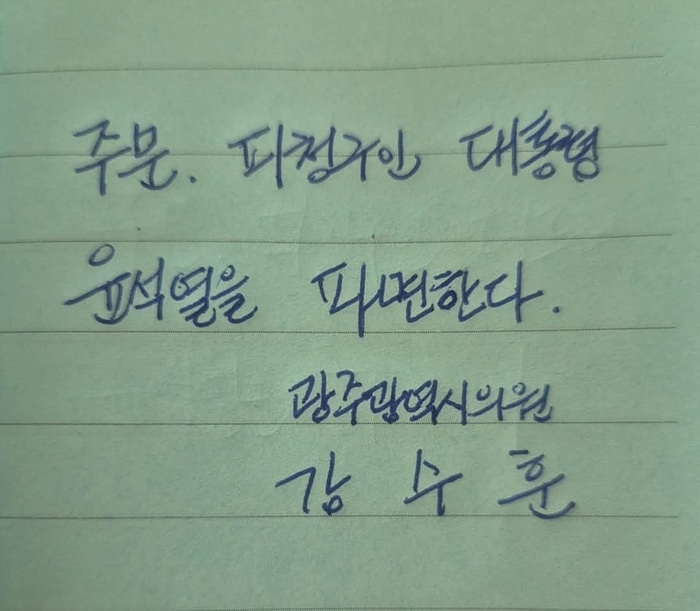 주문. 피청구인 대통령
윤석열을 파면한다.
광주광역시의원
강수훈